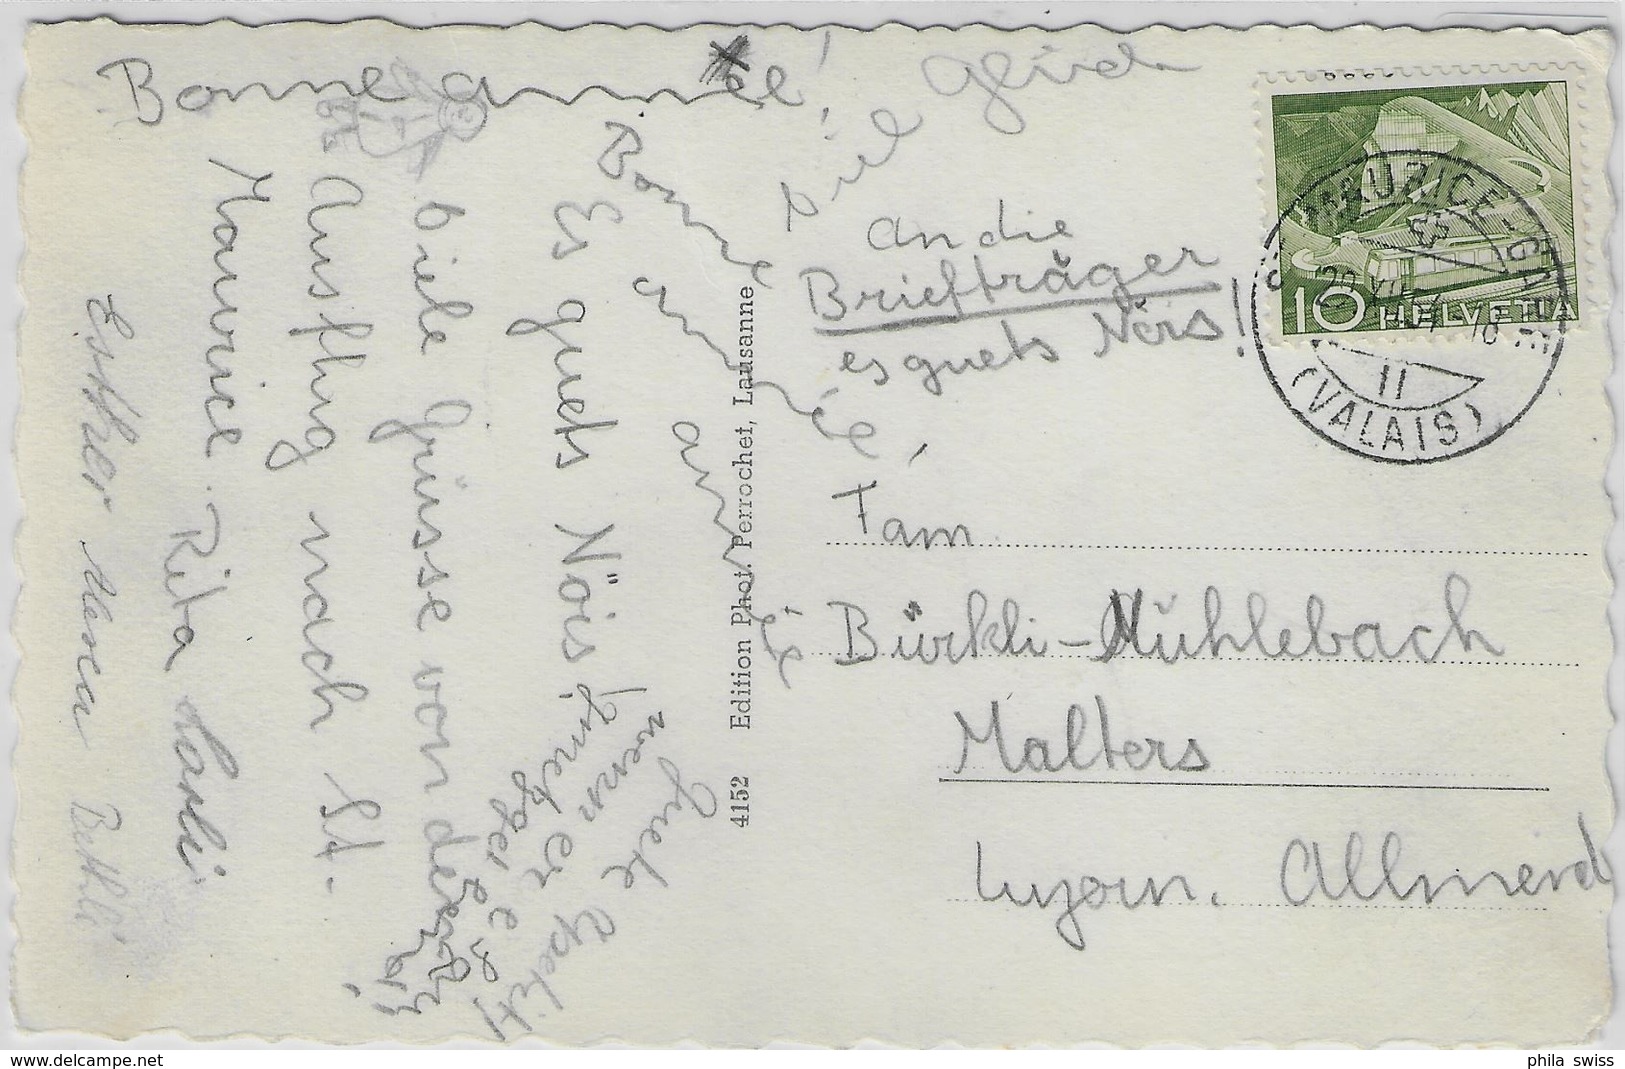 Bonne année!
viel Glück
an die
Briefträger
es guets Nöis!
Bonne année
année
Es guets Nöis!
viele Grüsse von der
Ausflug nach St.
Maurice. Rita
Esther Bethli
Guete
wenn er
4152 Edition Phot. Perrochet, Lausanne
Fam.
Bürkli-Mühlebach
Malters
Luzern. Allmend
10 HELVETIA
ST MAURICE-GARE
20.XII.
(VALAIS)
www.delcampe.net
phila_swiss